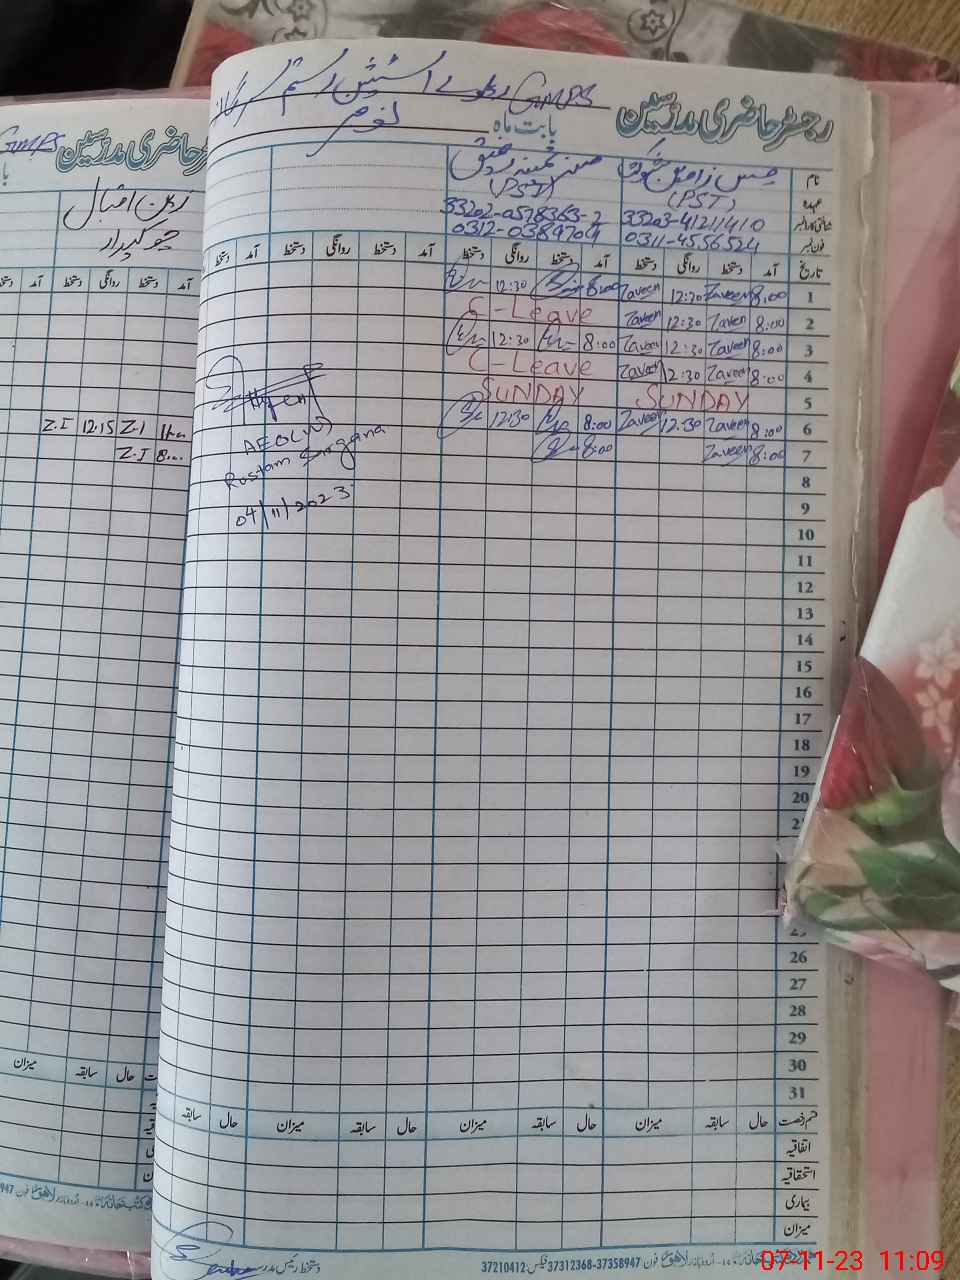 رجسٹر حاضری مدرسین GMPS ریلوے اسٹیشن رستم سرگانہ
بابت ماہ نومبر
نام مس زرمین شوکت مسز ثمینہ رفیق
عہدہ (PST) (PST)
شناختی کارڈ نمبر 33203-41211410 33202-0578363-2
فون نمبر 0311-4556524 0312-0389704
تاریخ آمد دستخط روانگی دستخط آمد دستخط روانگی دستخط آمد دستخط روانگی دستخط آمد دستخط
1 8:00 Zaveen 12:30 Zaveen 8:00 12:30
2 8:00 Zaveen 12:30 Zaveen C-Leave
3 8:00 Zaveen 12:30 Zaveen 8:00 12:30
4 8:00 Zaveen 12:30 Zaveen C-Leave
5 SUNDAY SUNDAY
6 8:00 Zaveen 12:30 Zaveen 8:00 12:30
7 8:00 Zaveen 8:00
AEO(W)
Rustam Sargana
04/11/2023
8
9
10
11
12
13
14
15
16
17
18
19
20
26
27
28
29
30
31
قسم رخصت حال سابقہ میزان حال سابقہ میزان حال سابقہ میزان حال سابقہ
اتفاقیہ
استحقاقیہ
بیماری
میزان
دستخط رئیس مدرسہ
لاہور فون 37358947-37312368 فیکس 37210412
رجسٹر حاضری مدرسین GMPS
زین اقبال
چوکیدار
آمد دستخط روانگی دستخط آمد
Z.I 12:15 Z.I
8:00 Z.I
حال سابقہ میزان
07-11-23 11:09